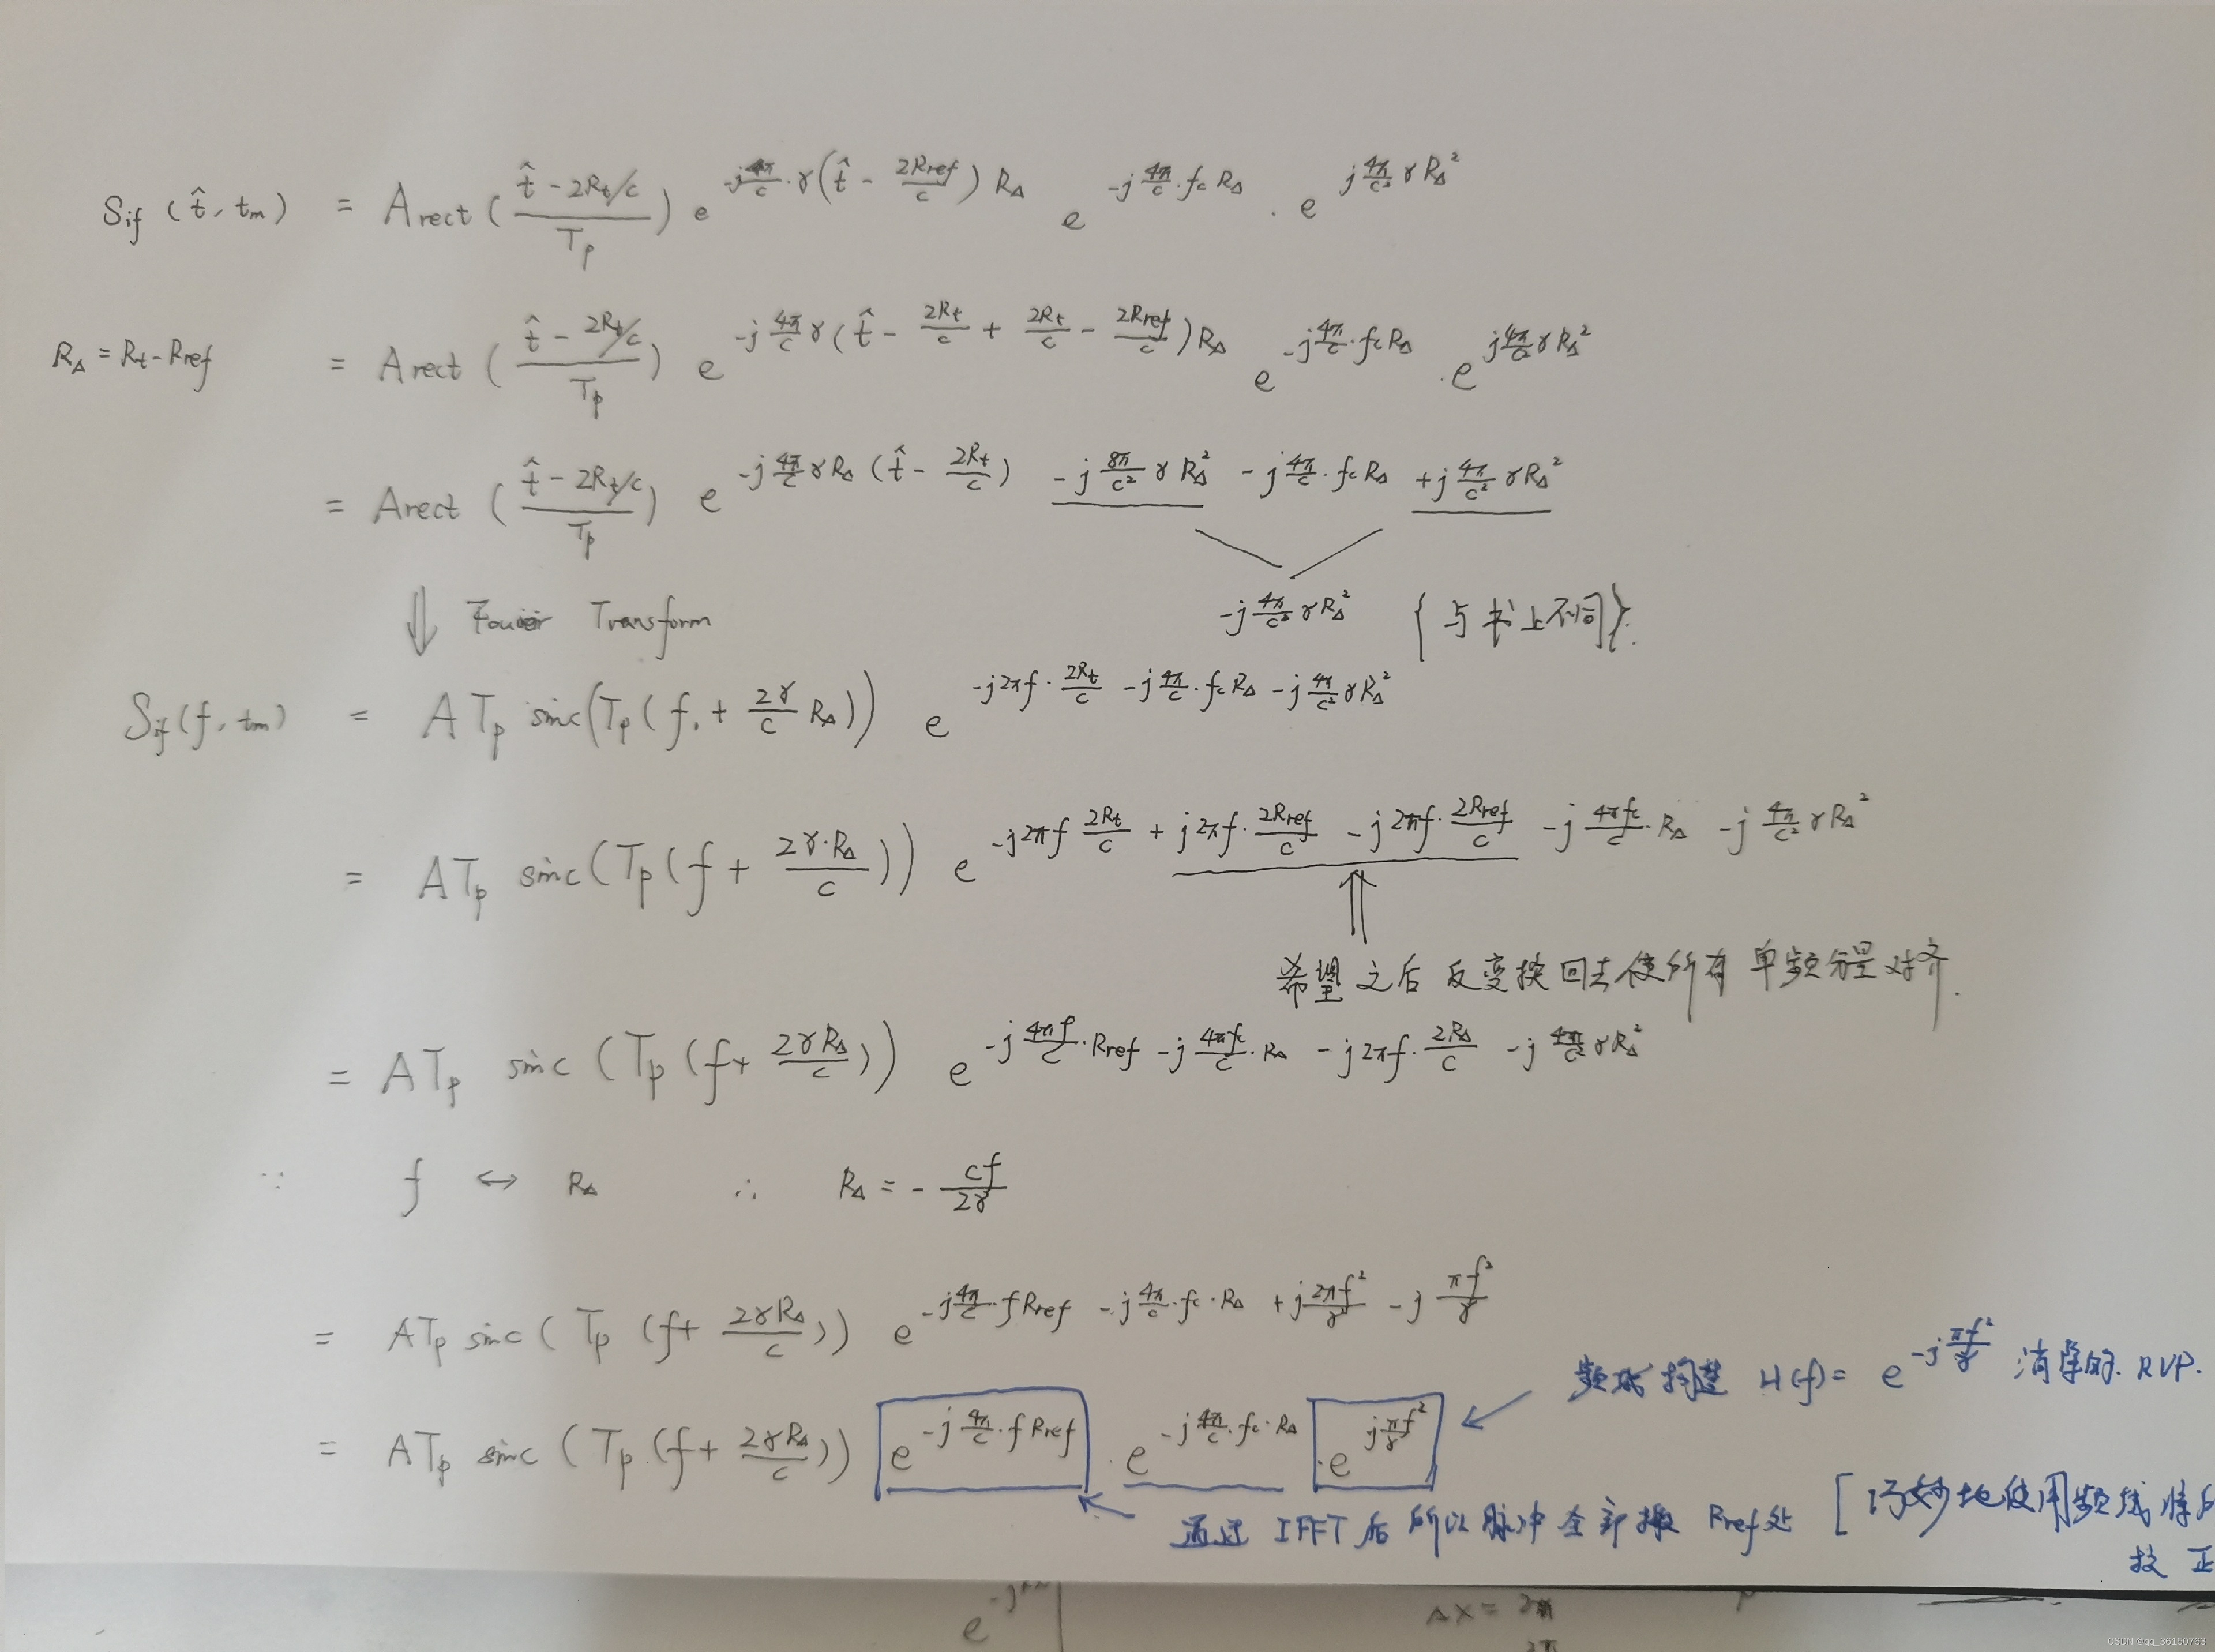 S_if (t̂, t_m) = A rect ( (t̂ - 2R_t/c) / T_p ) e^{-j 4π/c · γ ( t̂ - 2R_ref/c ) R_Δ} e^{-j 4π/c · f_c R_Δ} · e^{j 4π/c² γ R_Δ²}
R_Δ = R_t - R_ref = A rect ( (t̂ - 2R_t/c) / T_p ) e^{-j 4π/c γ ( t̂ - 2R_t/c + 2R_t/c - 2R_ref/c ) R_Δ} e^{-j 4π/c · f_c R_Δ} · e^{j 4π/c² γ R_Δ²}
= A rect ( (t̂ - 2R_t/c) / T_p ) e^{-j 4π/c γ R_Δ ( t̂ - 2R_t/c ) - j 8π/c² γ R_Δ² - j 4π/c · f_c R_Δ + j 4π/c² γ R_Δ²}
⇓ Fouier Transform -j 4π/c² γ R_Δ² {与书上不同}.
S_if (f, t_m) = A T_p sinc( T_p ( f + 2γ/c R_Δ ) ) e^{-j2πf · 2R_t/c - j 4π/c · f_c R_Δ - j 4π/c² γ R_Δ²}
= A T_p sinc ( T_p ( f + 2γ·R_Δ/c ) ) e^{-j2πf 2R_t/c + j2πf · 2R_ref/c - j2πf · 2R_ref/c - j 4πf_c/c · R_Δ - j 4π/c² γ R_Δ²}
⇑
希望之后反变换回去使所有单频分量对齐.
= A T_p sinc ( T_p ( f + 2γR_Δ/c ) ) e^{-j 4πf/c · R_ref - j 4πf_c/c · R_Δ - j2πf · 2R_Δ/c - j 4π/c² γ R_Δ²}
∵ f ↔ R_Δ ∴ R_Δ = - cf/2γ
= A T_p sinc ( T_p ( f + 2γR_Δ/c ) ) e^{-j 4π/c · f R_ref - j 4π/c · f_c · R_Δ + j 2πf²/γ - j πf²/γ}
频域构造 H(f) = e^{-j πf²/γ} 消除的 RVP.
= A T_p sinc ( T_p · ( f + 2γR_Δ/c ) ) e^{-j 4π/c · f R_ref} · e^{-j 4π/c · f_c · R_Δ} · e^{j πf²/γ}
通过 IFFT 后所以脉冲全部搬 R_ref 处 [巧妙地使用频域
e^{-j
ΔX = 2π
CSDN @qq_36150763